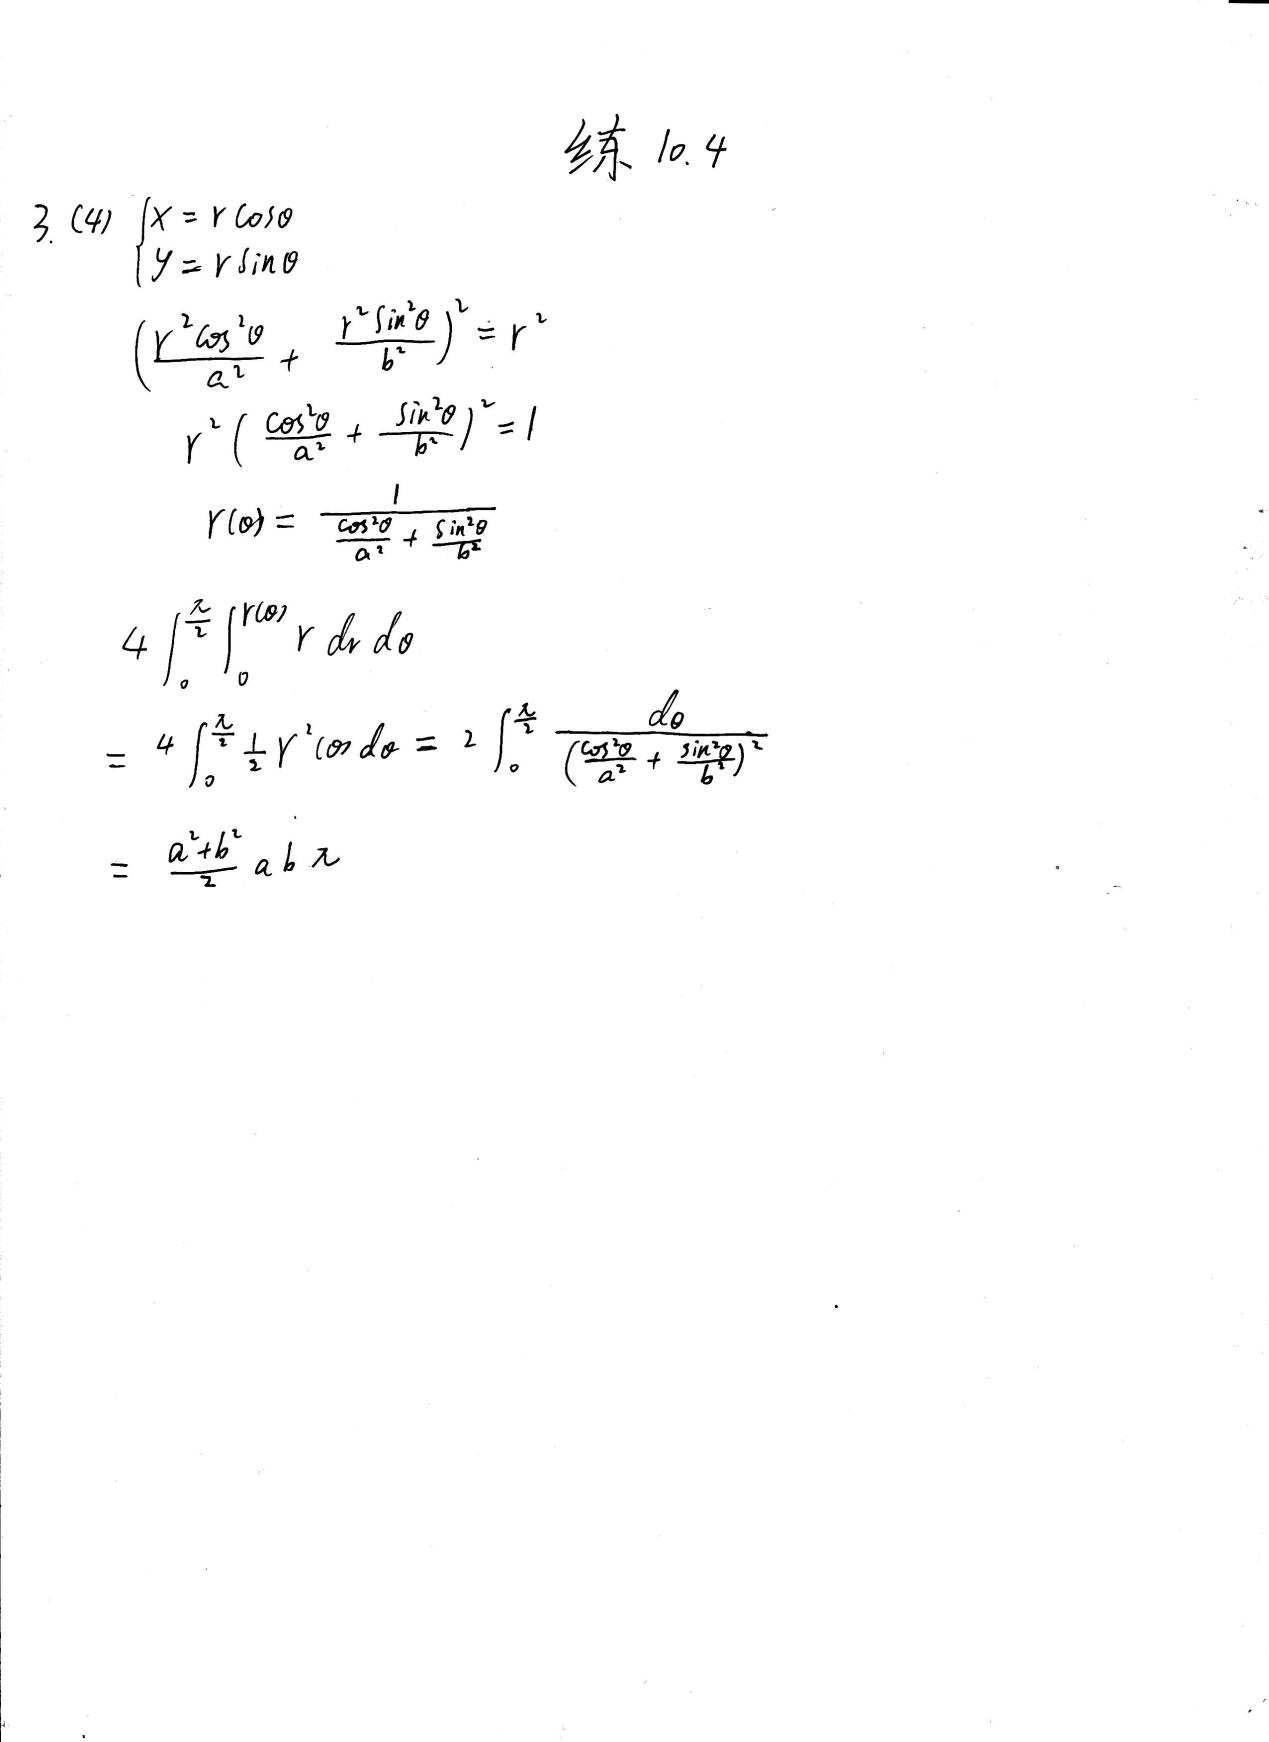 练 10.4
3. (4) { x = r cosθ
y = r sinθ
(r²cos²θ/a² + r²sin²θ/b²)² = r²
r²(cos²θ/a² + sin²θ/b²)² = 1
r(θ) = 1/(cos²θ/a² + sin²θ/b²)
4∫₀^(π/2) ∫₀^(r(θ)) r dr dθ
= 4∫₀^(π/2) ½ r²(θ) dθ = 2∫₀^(π/2) dθ/(cos²θ/a² + sin²θ/b²)²
= (a²+b²)/2 abπ